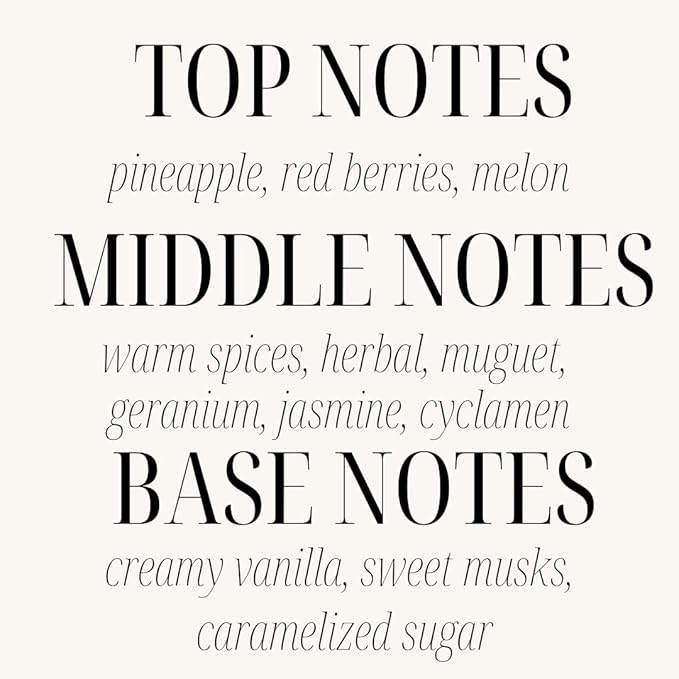 TOP NOTES
pineapple, red berries, melon
MIDDLE NOTES
warm spices, herbal, muguet,
geranium, jasmine, cyclamen
BASE NOTES
creamy vanilla, sweet musks,
caramelized sugar